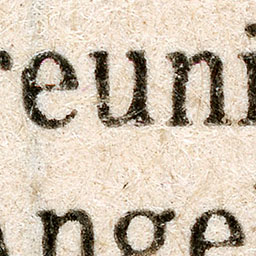 reuni
ange